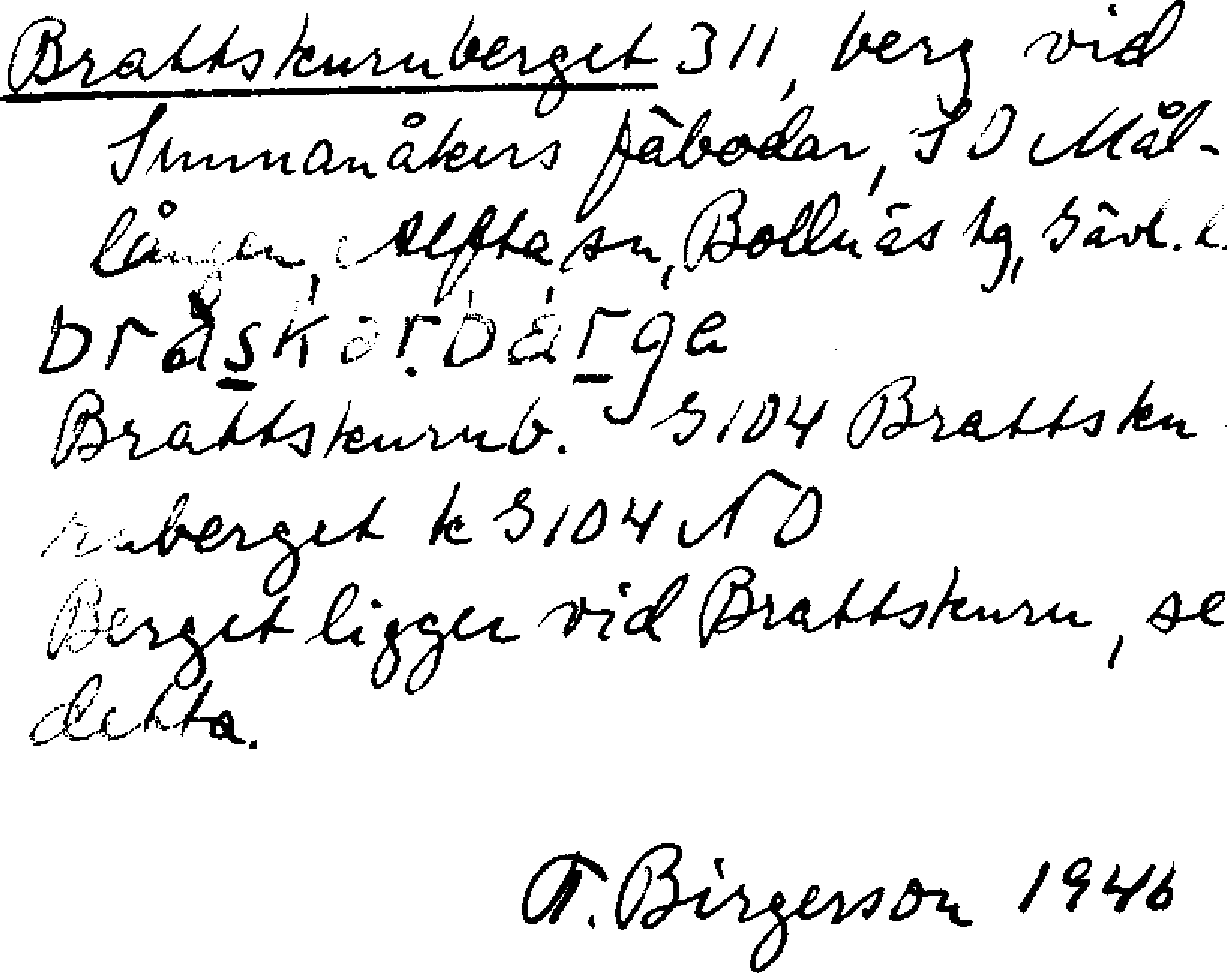 Brattskurnberget 311, berg vid
Sunnanåkers fäbodar, SO Mål-
lången, Alfta sn, Bollnäs tg, Gävl. l.
bråskor.bärga
Brattskurnb. G104 Brattsku
rnberget k G104 NO
Berget ligger vid Brattskurn, se
detta.
T. Birgerson 1946